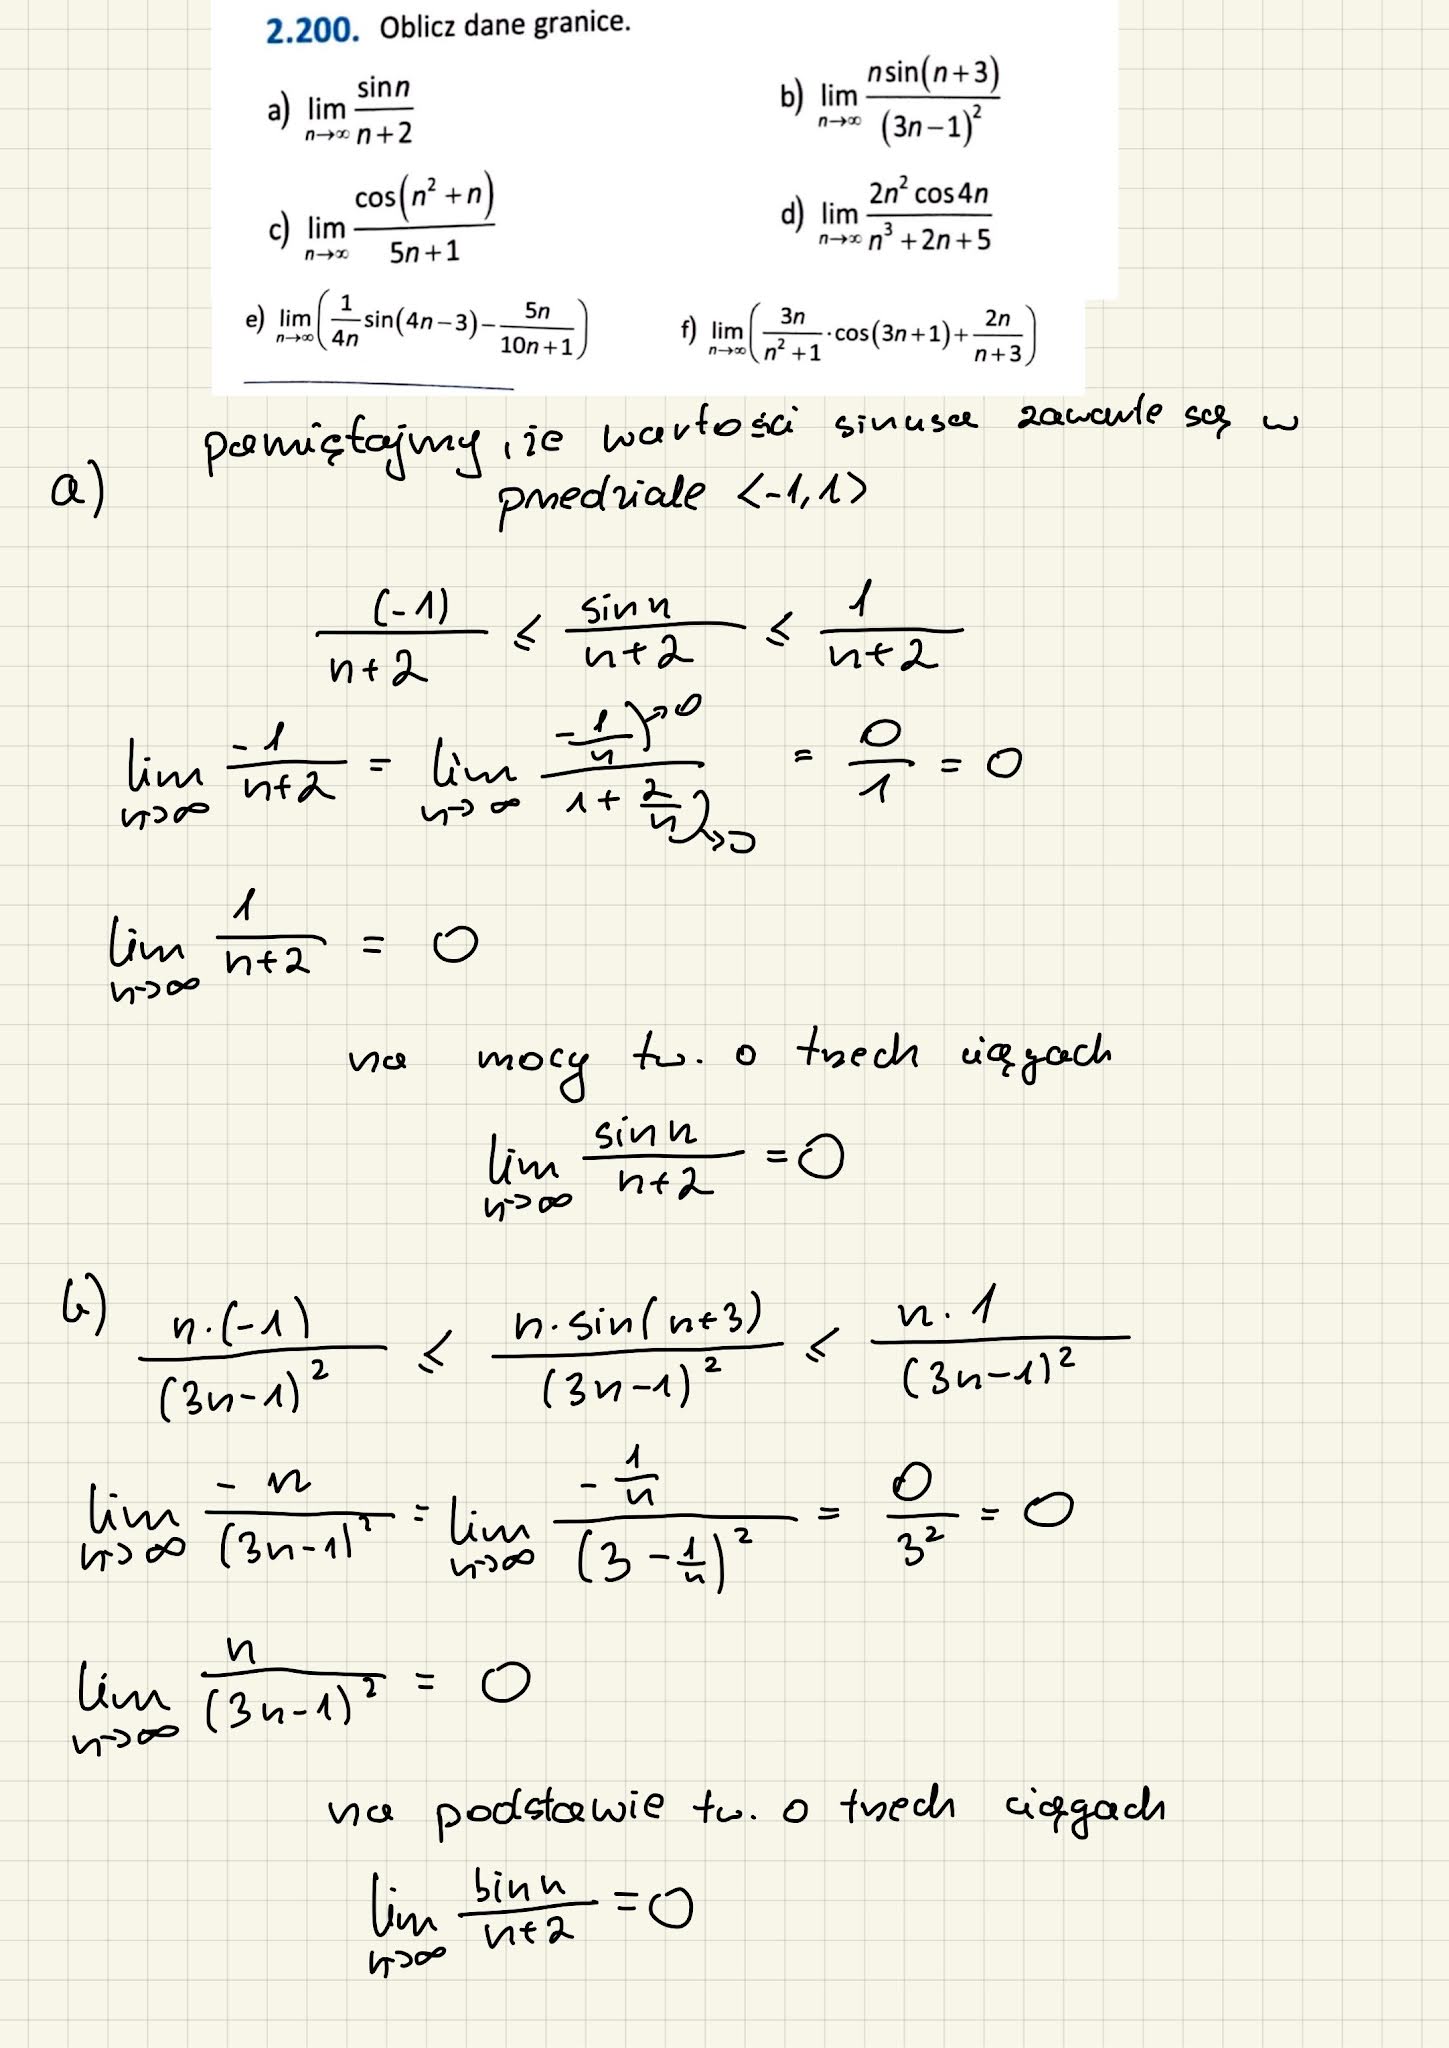 2.200. Oblicz dane granice.
a) lim n→∞ sin n / (n+2)
b) lim n→∞ n sin(n+3) / (3n−1)²
c) lim n→∞ cos(n²+n) / (5n+1)
d) lim n→∞ 2n² cos 4n / (n³+2n+5)
e) lim n→∞ (1/(4n) sin(4n−3) − 5n/(10n+1))
f) lim n→∞ (3n/(n²+1) · cos(3n+1) + 2n/(n+3))
pamiętajmy, że wartości sinusa zawarte są w
a) przedziale <-1,1>
(-1)/(n+2) ≤ sin n/(n+2) ≤ 1/(n+2)
lim n→∞ -1/(n+2) = lim n→∞ (-1/n)→0 / (1 + 2/n)→0 = 0/1 = 0
lim n→∞ 1/(n+2) = 0
na mocy tw. o trzech ciągach
lim n→∞ sin n/(n+2) = 0
b) n·(-1)/(3n-1)² ≤ n·sin(n+3)/(3n-1)² ≤ n·1/(3n-1)²
lim n→∞ -n/(3n-1)² = lim n→∞ (-1/n)/(3 - 1/n)² = 0/3² = 0
lim n→∞ n/(3n-1)² = 0
na podstawie tw. o trzech ciągach
lim n→∞ sin n/(n+2) = 0